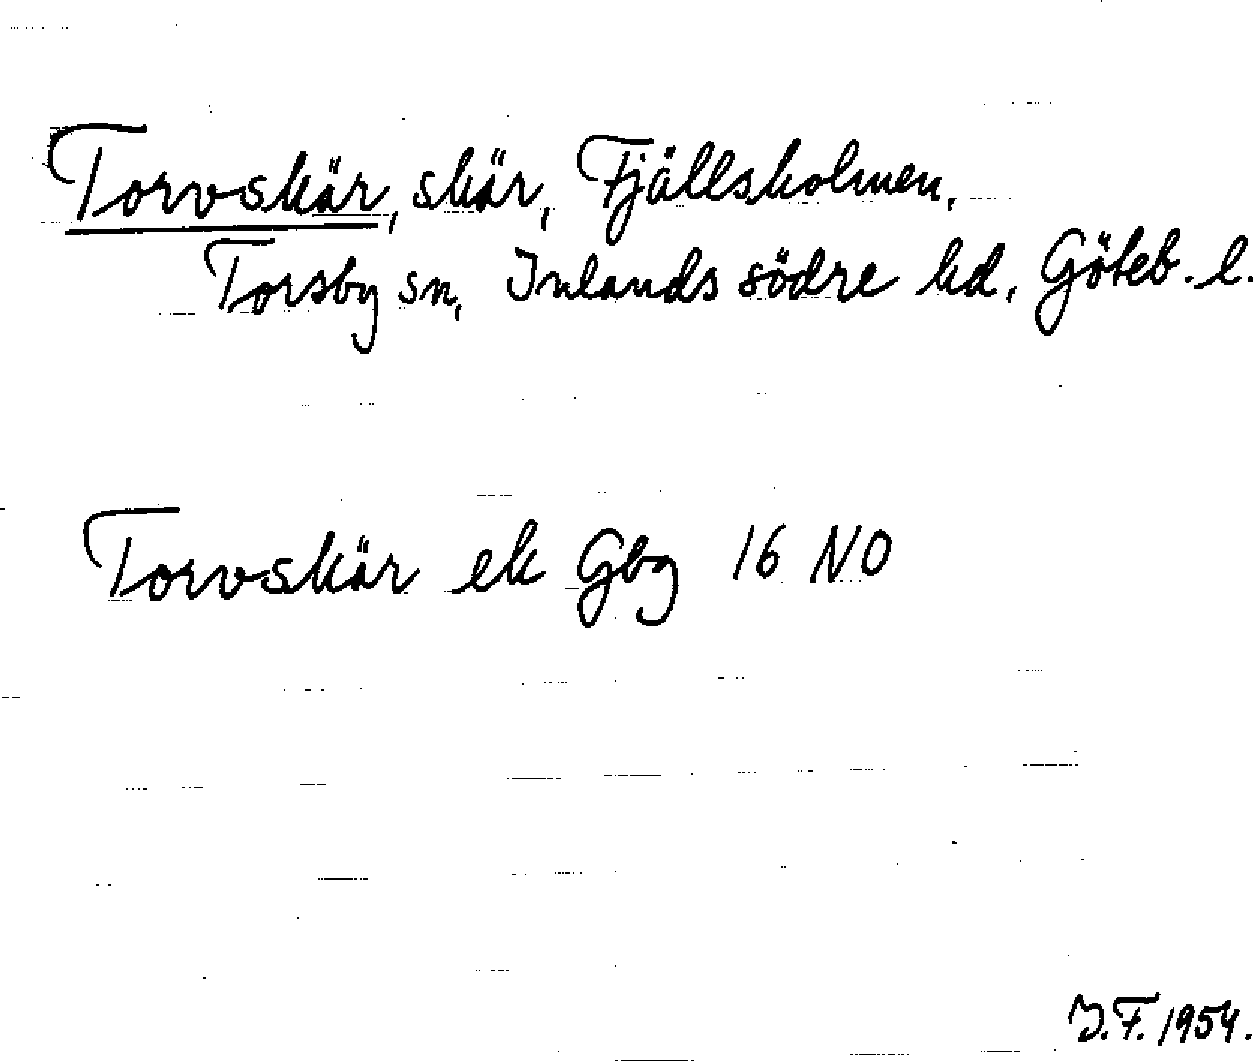 Torvskär, skär, Fjällsholmen,
Torsby sn, Inlands södre hd, Göteb. l.
Torvskär ek Gbg 16 NO
J.F. 1954.